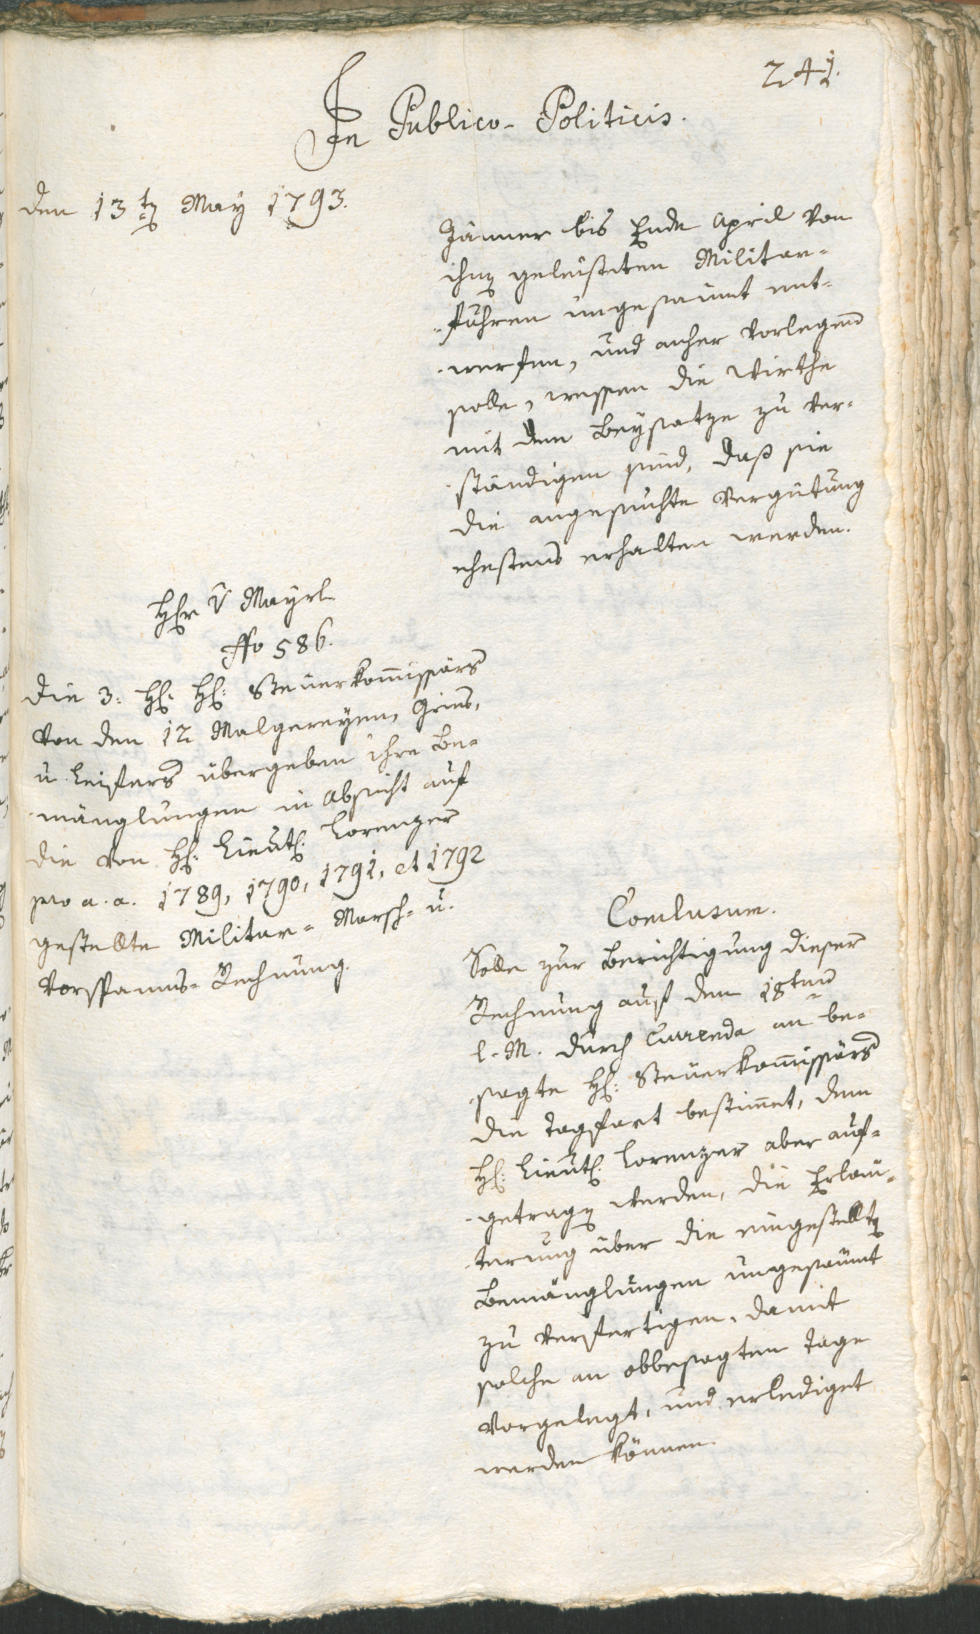 241.
In Publico-Politicis.
den 13tn May 1793.
Jänner bis Ende April von
ihn geleisteten Militar-
-fuhren ungesaümt ent-
-werfen, und anher vorlegen
solle, wessen die Wirthe
mit dem Beysatze zu ver-
-ständigen sind, daß sie
die angesuchte Vergütung
ehestens erhalten werden.
Hr v Mayrl
ffo 586.
Die 3: H: H: Steuerkom̅issärs
von den 12 Malgereyen, Gries,
u. Leifers übergeben ihre Be-
-mänglungen in Absicht auf
die von H: Lieut: Lorenzer
pro a. a. 1789, 1790, 1791, et 1792
gestellte Militar- Marsch- u.
Vorspanns- Rechnung.
Conclusum.
Solle zur Berichtigung dieser
Rechnung auf den 18ten
l. M. durch Currenda an be-
-sagte H: Steuerkom̅issärs
die Tagfart bestim̅et, dem
H: Lieut: Lorenzer aber auf-
-getragn werden, die Erläu-
-terung über die eingestelltn
Bemänglungen ungesaümt
zu verfertigen, damit
solche an obbesagtem Tage
vorgelegt, und erlediget
werden können.